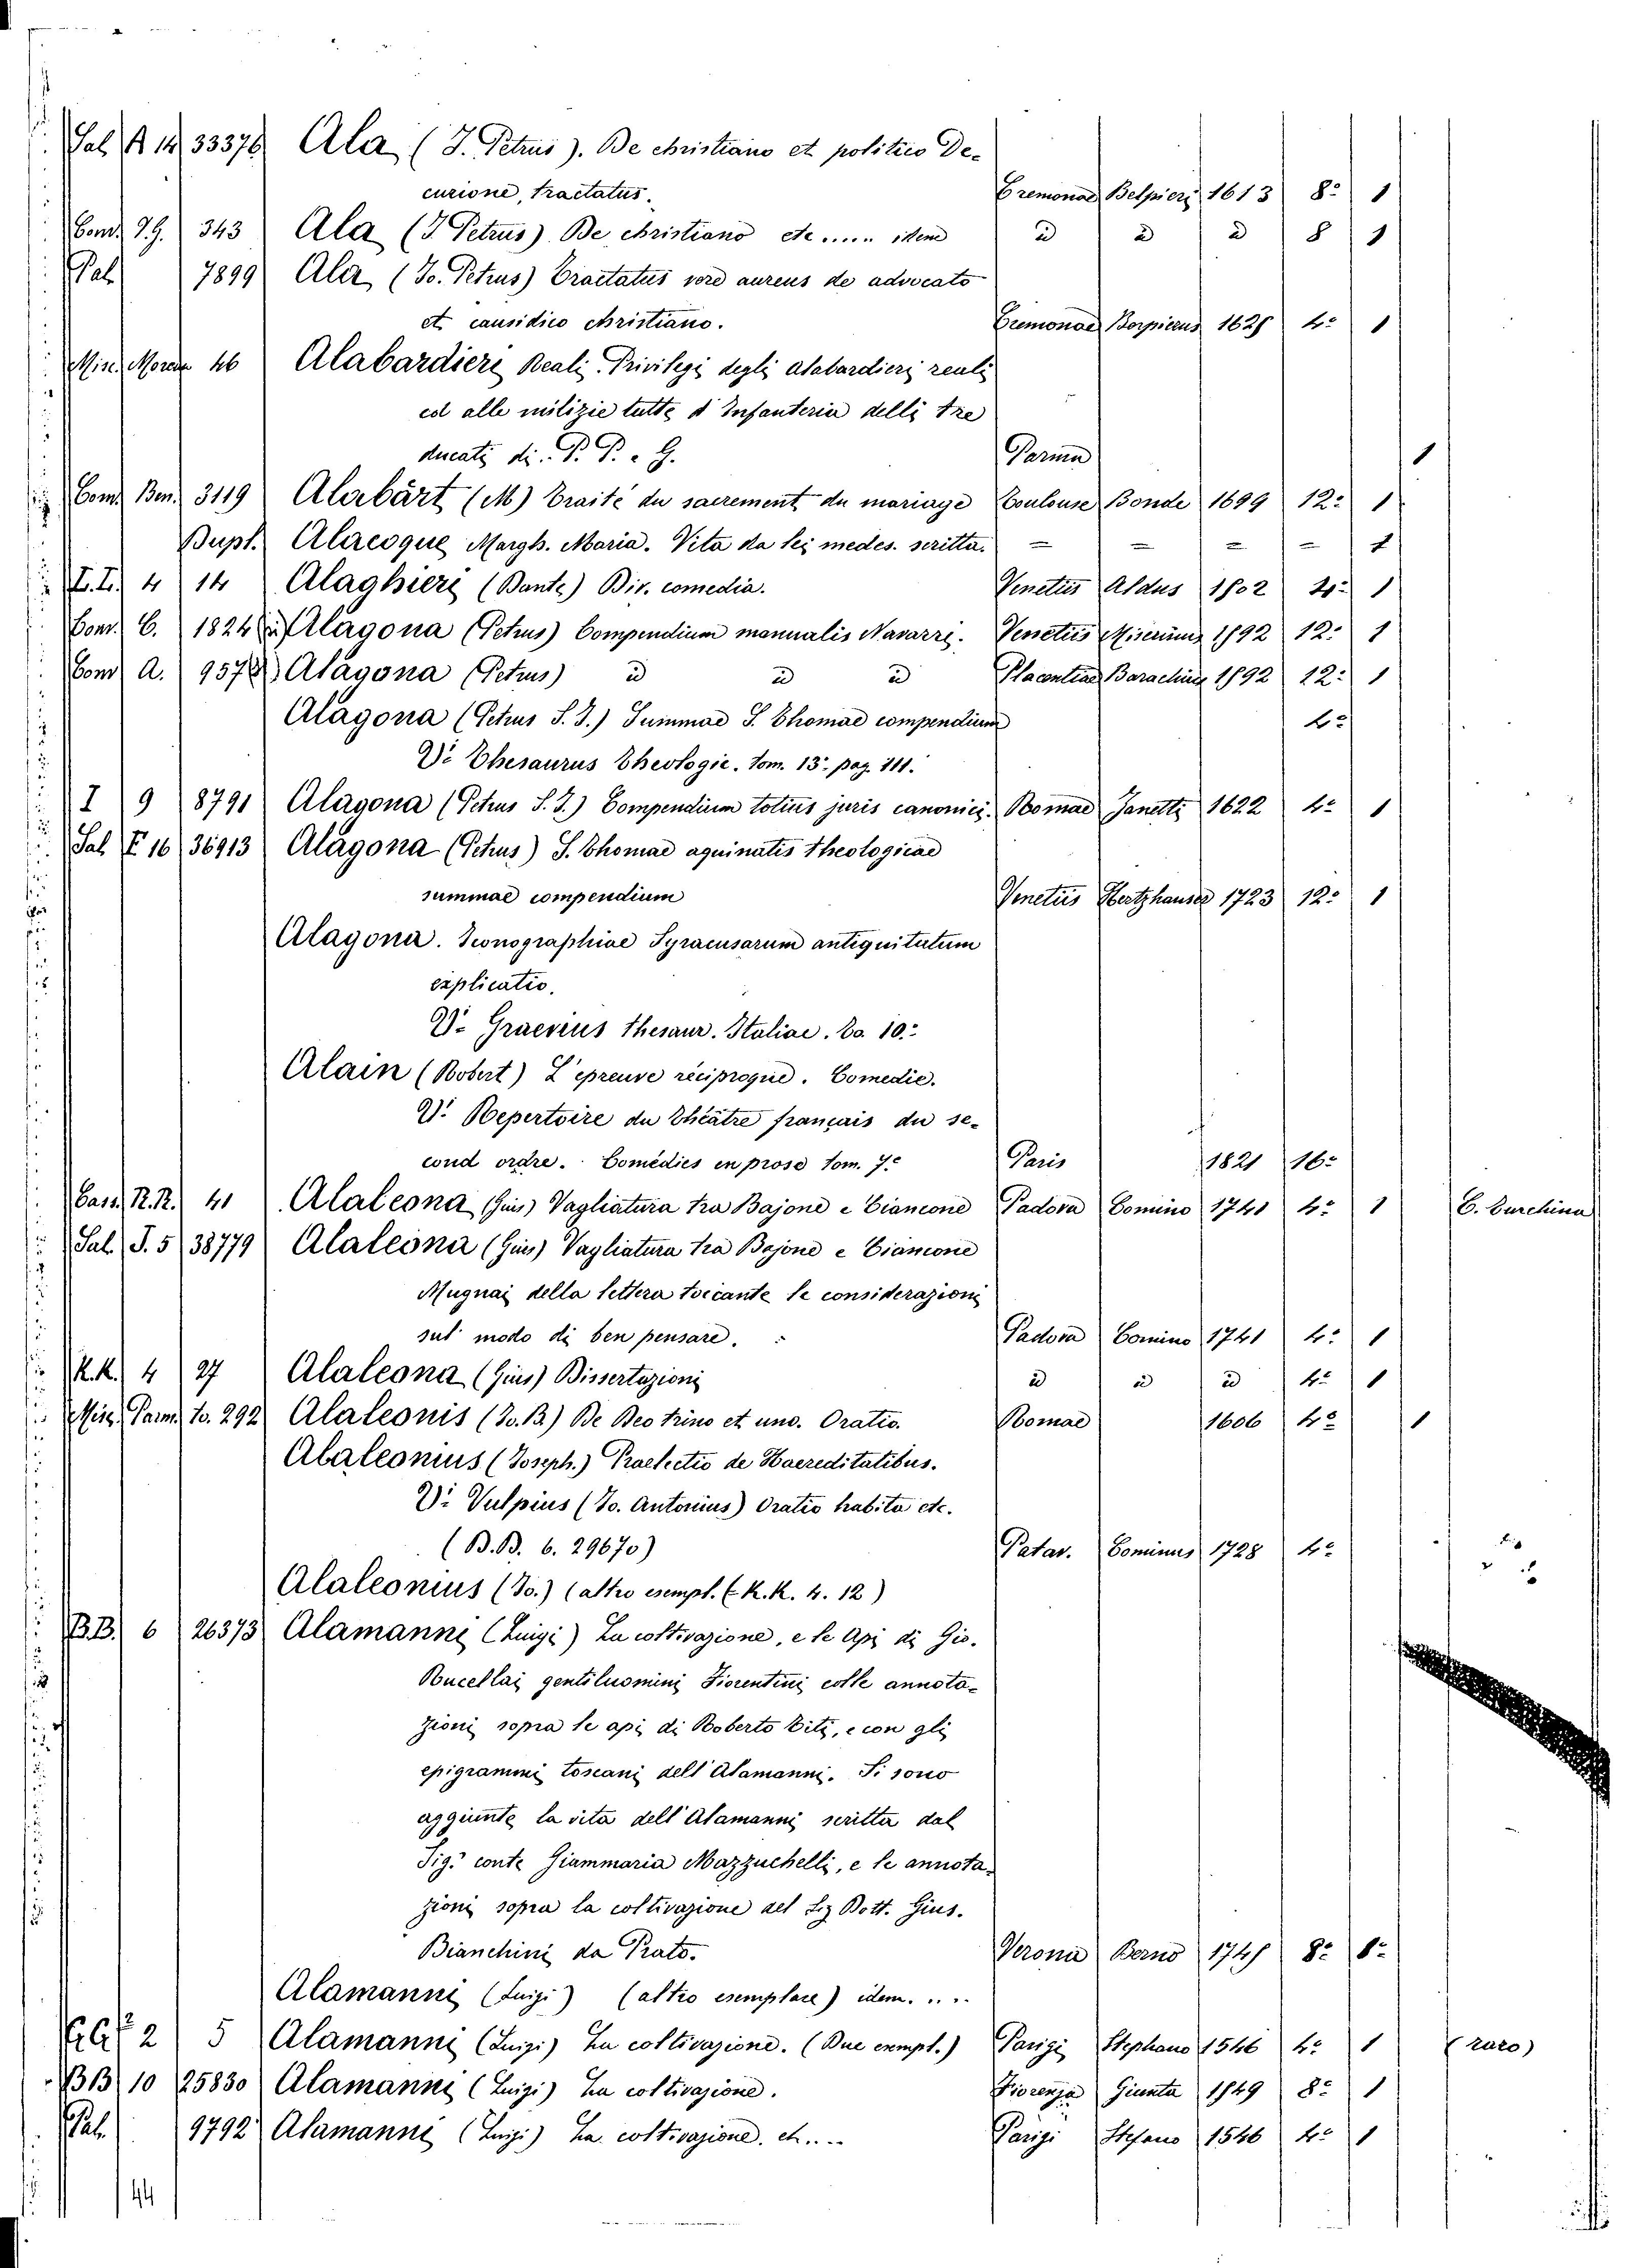 Sal. A 14 33376 Ala (J. Petrus). De christiano et politico De-
curione, tractatus. Cremonae Belpieri 1613 8º 1
Cond. 343 Ala (J Petrus) De christiano etc ..... idem id id id 8 1
Pal. 7899 Ala (Jo. Petrus) Tractatus vere aureus de advocato
et causidico christiano. Cremonae 4º 1
Misc. 46 Alabardieri Reali. Privilegi degli alabardieri reali
ed alle milizie tutte d'Infanteria delli tre
ducati di P. P. e G. Parma 1
Cond. Ben. 3119 Alabàrt (M) Traité du sacrement du mariage Toulouse Bonde 1699 12º 1
Dupl. Alacoque Margh. Maria. Vita da lei medes. scritta. = = = = 1
4 14 Alaghieri (Dante) Div. comedia. Venetiis Aldus 1502 1
Cond. C. 1824 Alagona (Petrus) Compendium manualis Navarri. Venetiis 1592 12º 1
Cond A. 957 Alagona (Petrus) id id id Placentiae 1592 12º 1
Alagona (Petrus S. J.) Summae S. Thomae compendium 4º
Vº Thesaurus Theologic. tom. 13º pag. 111.
I 9 8791 Alagona (Petrus S. J.) Compendium totius juris canonici. Romae Janetti 1622 4º 1
Sal. F 16 36913 Alagona (Petrus) S. Thomae aquinatis theologicae
summae compendium Venetiis Hertzhauser 1723 12º 1
Alagona. Iconographiae Syracusarum antiquitatum
explicatio.
Vº Graevius thesaur. Italiae. To. 10º
Alain (Robert) L'epreuve réciproque. Comedie.
Vº Repertoire du Théâtre français du se-
cond ordre. Comédies en prose tom. 7º Paris 1821 16º
Cass. R.R. 41 Alaleona (Gius) Vagliatura tra Bajone e Ciancone Padova Comino 1741 4º 1
Sal. J. 5 38779 Alaleona (Gius) Vagliatura tra Bajone e Ciancone
Mugnai della lettera toccante le considerazioni
sul modo di ben pensare. Padova Comino 1741 4º 1
K.K. 4 27 Alaleona (Gius) Dissertazioni id id id 4º 1
Misc. Parm. to. 292 Alaleonis (Jo. B.) De Deo trino et uno. Oratio. Romae 1606 4º 1
Alaleonius (Joseph.) Praelectio de Haereditatibus.
Vº Vulpius (Jo. Antonius) Oratio habita etc.
(B.B. 6. 29670) Patav. Cominus 1728 4º
Alaleonius (Jo.) (altro esempl. (K.K. 4. 12)
B.B. 6 26373 Alamanni (Luigi) La coltivazione, e le Api di Gio.
Rucellai gentiluomini Fiorentini colle annota-
zioni sopra le api di Roberto Titi, e con gli
epigrammi toscani dell'Alamanni. Si sono
aggiunte la vita dell'Alamanni scritta dal
Sigr conte Giammaria Mazzuchelli, e le annota-
zioni sopra la coltivazione del Dott. Gius.
Bianchini da Prato. Verona Berno 1745 8º
Alamanni (Luigi) (altro esemplare) idem. ....
2 5 Alamanni (Luigi) La coltivazione. (Due esempl.) Parigi Stephano 1546 4º 1 (raro)
BB 10 25830 Alamanni (Luigi) La coltivazione. Fiorenza Giunta 1549 8º 1
Pal. 9792 Alamanni (Luigi) La coltivazione. Parigi Stefano 1546 4º 1
44